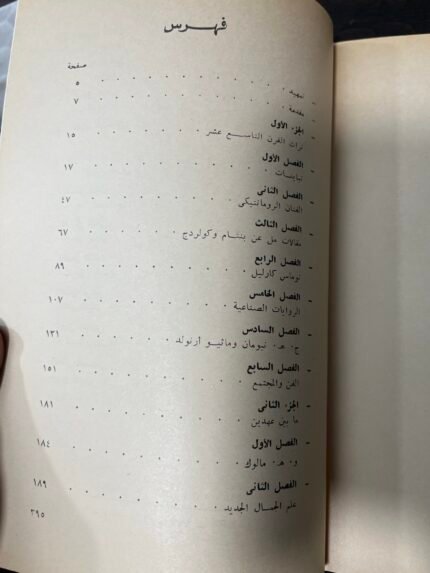 فهرس
صفحة
- تمهيد . . . . . . . . . . ٥
- مقدمة . . . . . . . . . . ٧
- الجزء الأول
تراث القرن التاسع عشر . . . . . . ١٥
- الفصل الأول
تباينات . . . . . . . . . ١٧
- الفصل الثانى
الفنان الرومانتيكى . . . . . . . ٤٧
- الفصل الثالث
مقالات مل عن بنتام وكولردج . . . . . ٦٧
- الفصل الرابع
توماس كارليل . . . . . . . . ٨٩
- الفصل الخامس
الروايات الصناعية . . . . . . . ١٠٧
- الفصل السادس
ج. هـ. نيومان وماثيو ارنولد . . . . . ١٣١
- الفصل السابع
الفن والمجتمع . . . . . . . . ١٥١
- الجزء الثانى
ما بين عهدين . . . . . . . . ١٨١
- الفصل الأول
و. هـ. مالوك . . . . . . . . ١٨٤
- الفصل الثانى
علم الجمال الجديد . . . . . . . ١٨٩
٣٩٥